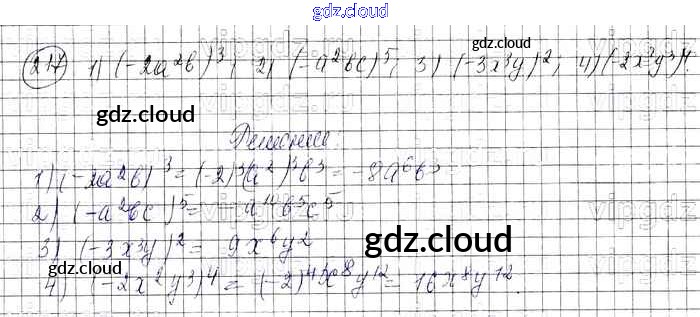 gdz.cloud
217 1) (-2a²b)³; 2) (-a²bc)⁵; 3) (-3x³y)²; 4) (-2x²y³)⁴.
gdz.cloud
Решение:
1) (-2a²b)³ = (-2)³(a²)³b³ = -8a⁶b³
2) (-a²bc)⁵ = a¹⁰b⁵c⁵
3) (-3x³y)² = 9x⁶y²
gdz.cloud gdz.cloud
4) (-2x²y³)⁴ = (-2)⁴x⁸y¹² = 16x⁸y¹².
gdz.cloud